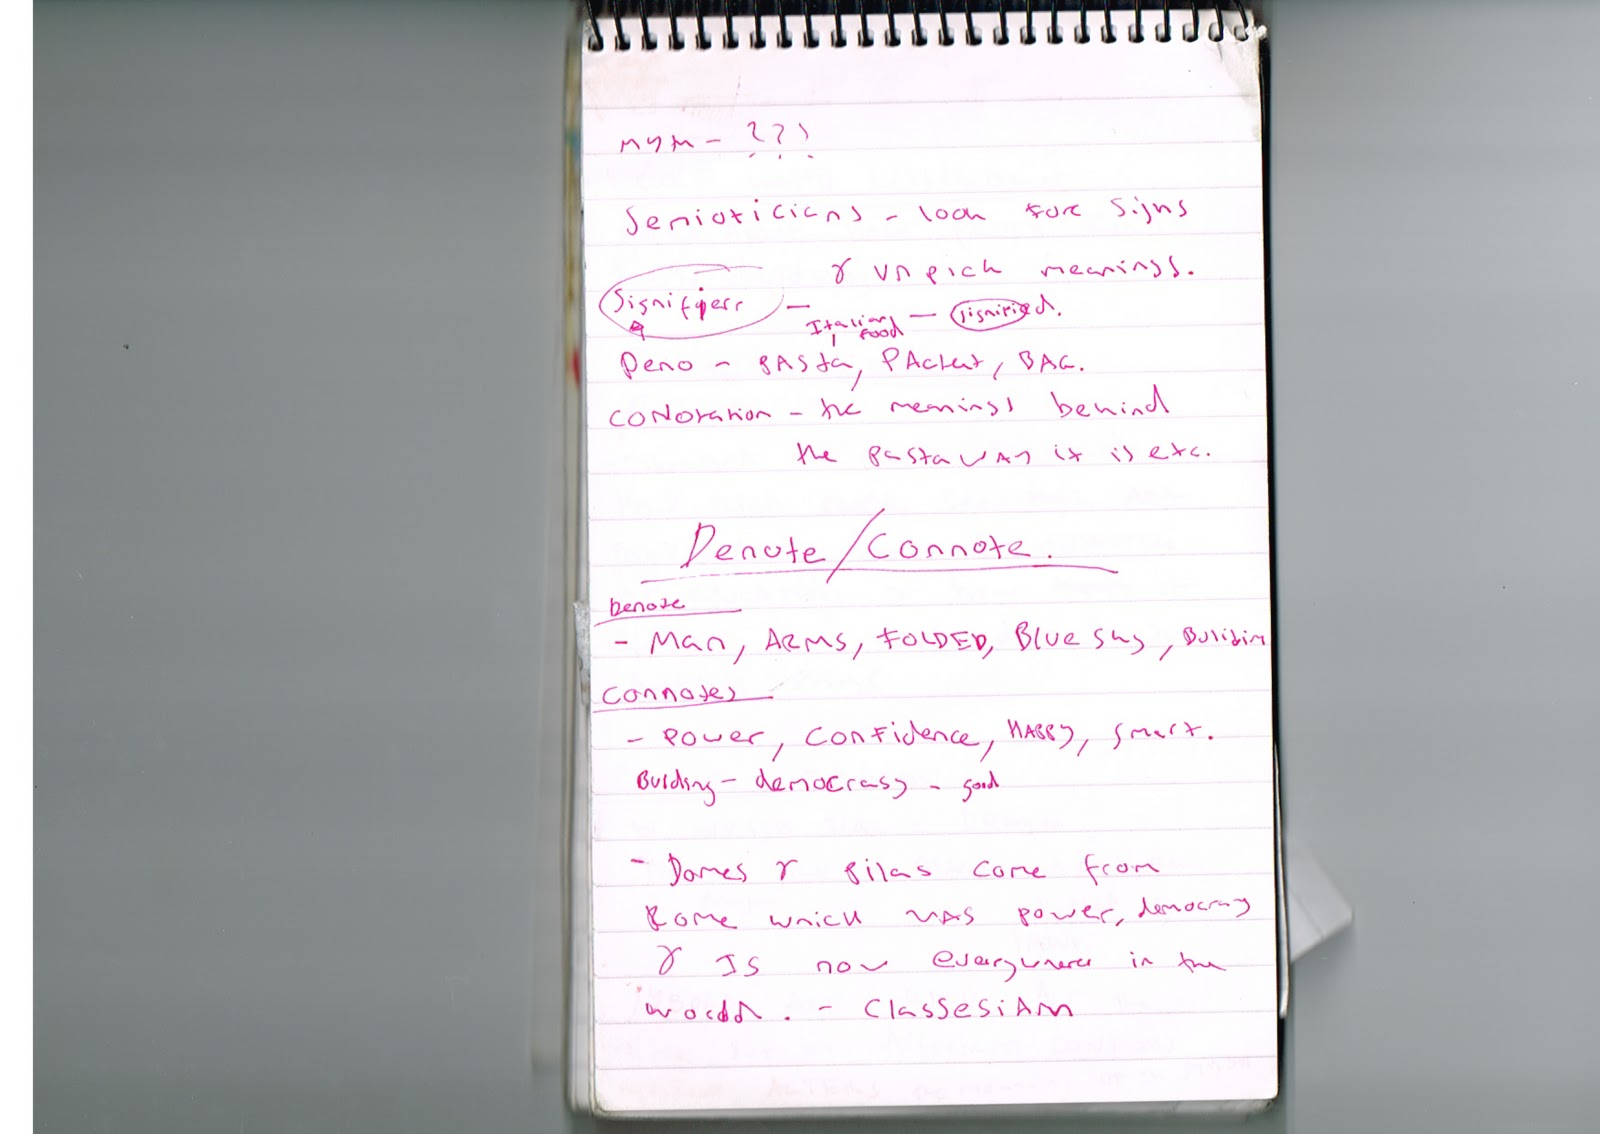 myth - ???
Semioticians - look for signs
& unpick meanings.
Signifierr - Italian Food - signified.
Deno - PASta, PAcket, BAG.
CONotation - the meanings behind
the Pasta way it is etc.
Denote/Connote.
Denote
- Man, ARMS, FOLDED, Blue Sky, Buildin
Connotes
- Power, Confidence, HAPPY, smart.
Building - democrasy - good
- Domes & Pilas come from
Rome which was power, democracy
& IS now everywhere in the
world. - Classesism